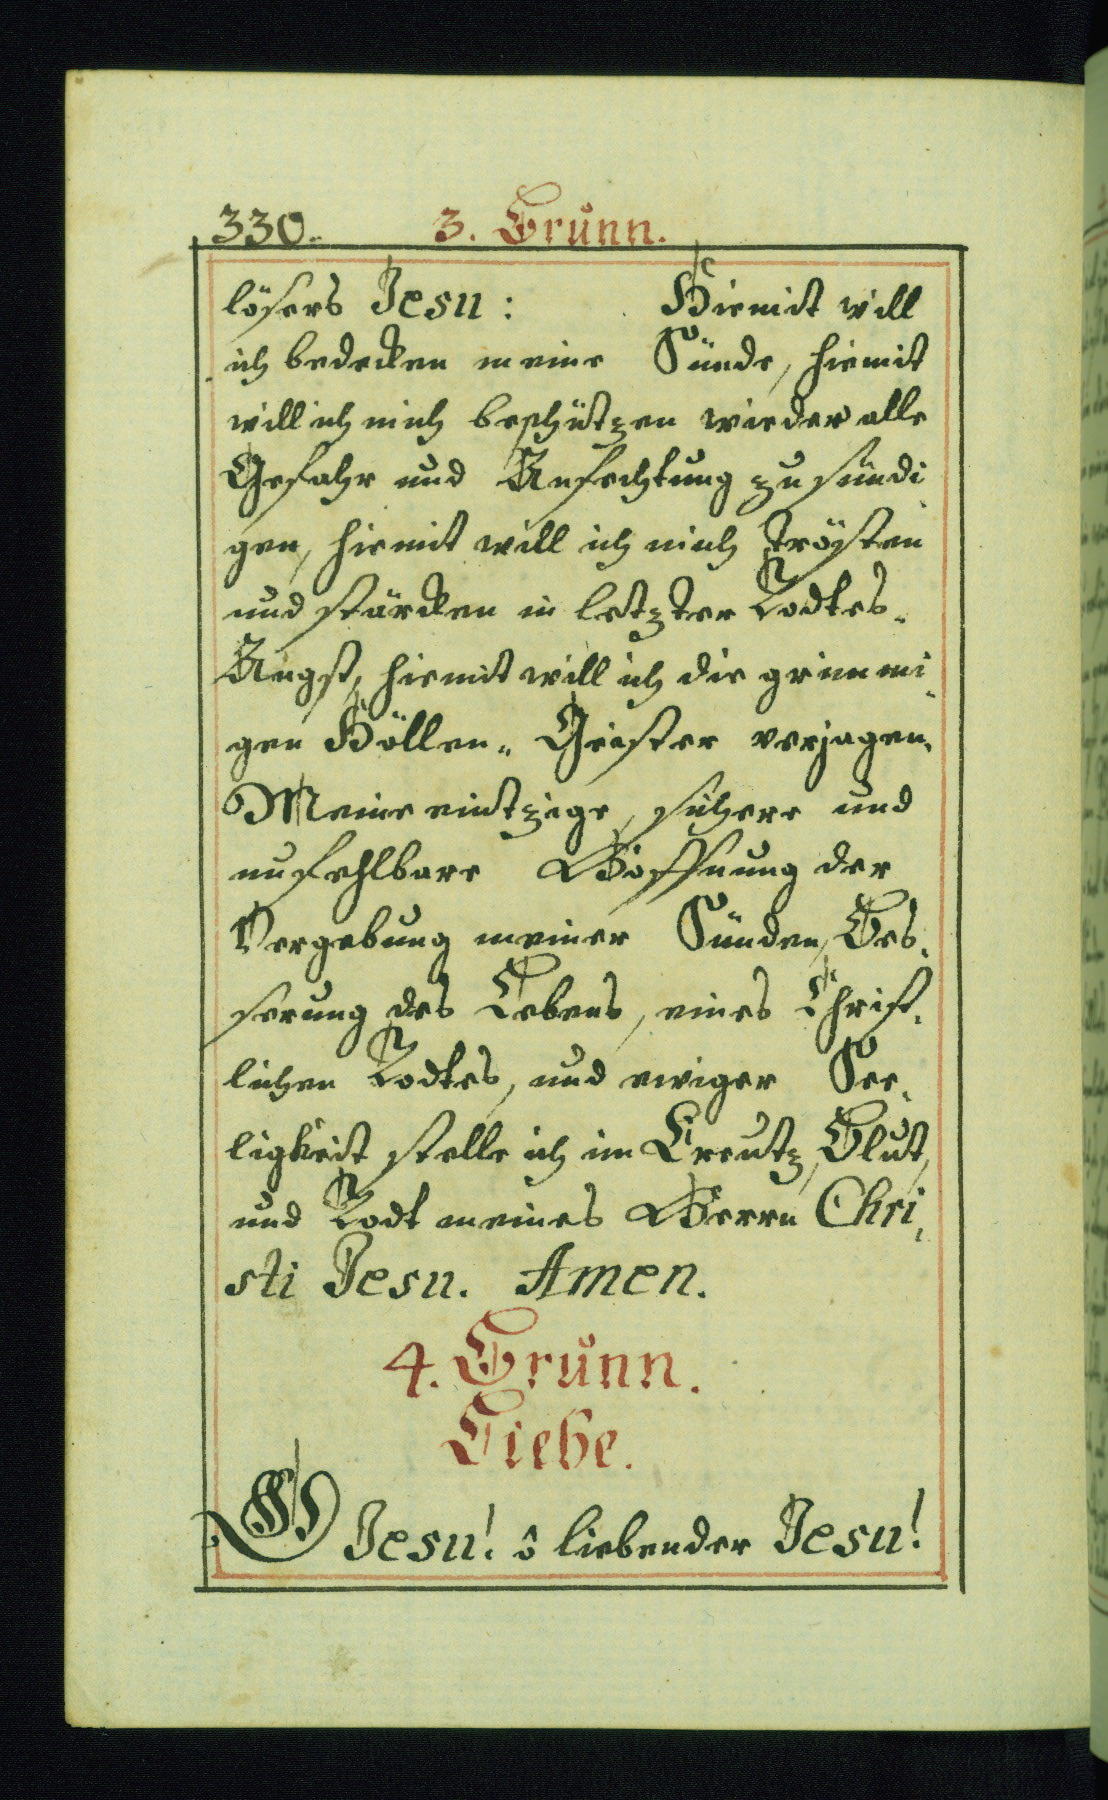 330. 3. Brunn.
lösers Jesu: Hiemit will
ich bedecken meine Sünde, hiemit
will ich mich beschützen wieder alle
Gefahr und Anfechtung zu sündi,
gen, hiemit will ich mich trösten
und stärcken in letzter Todtes„
Angst, hiemit will ich die grimmi,
gen Höllen„ Geister verjagen.
Meine eintzige, sichere und
unfehlbare Hoffnung der
Vergebung meiner Sünden, Bes,
serung des Lebens, eines Christ,
lichen Todtes, und ewiger See,
ligkeit stelle ich im Kreutz, Blut,
und Todt meines Herrn Chri,
sti Jesu. Amen.
4. Brunn.
Liebe.
O Jesu! ô liebender Jesu!